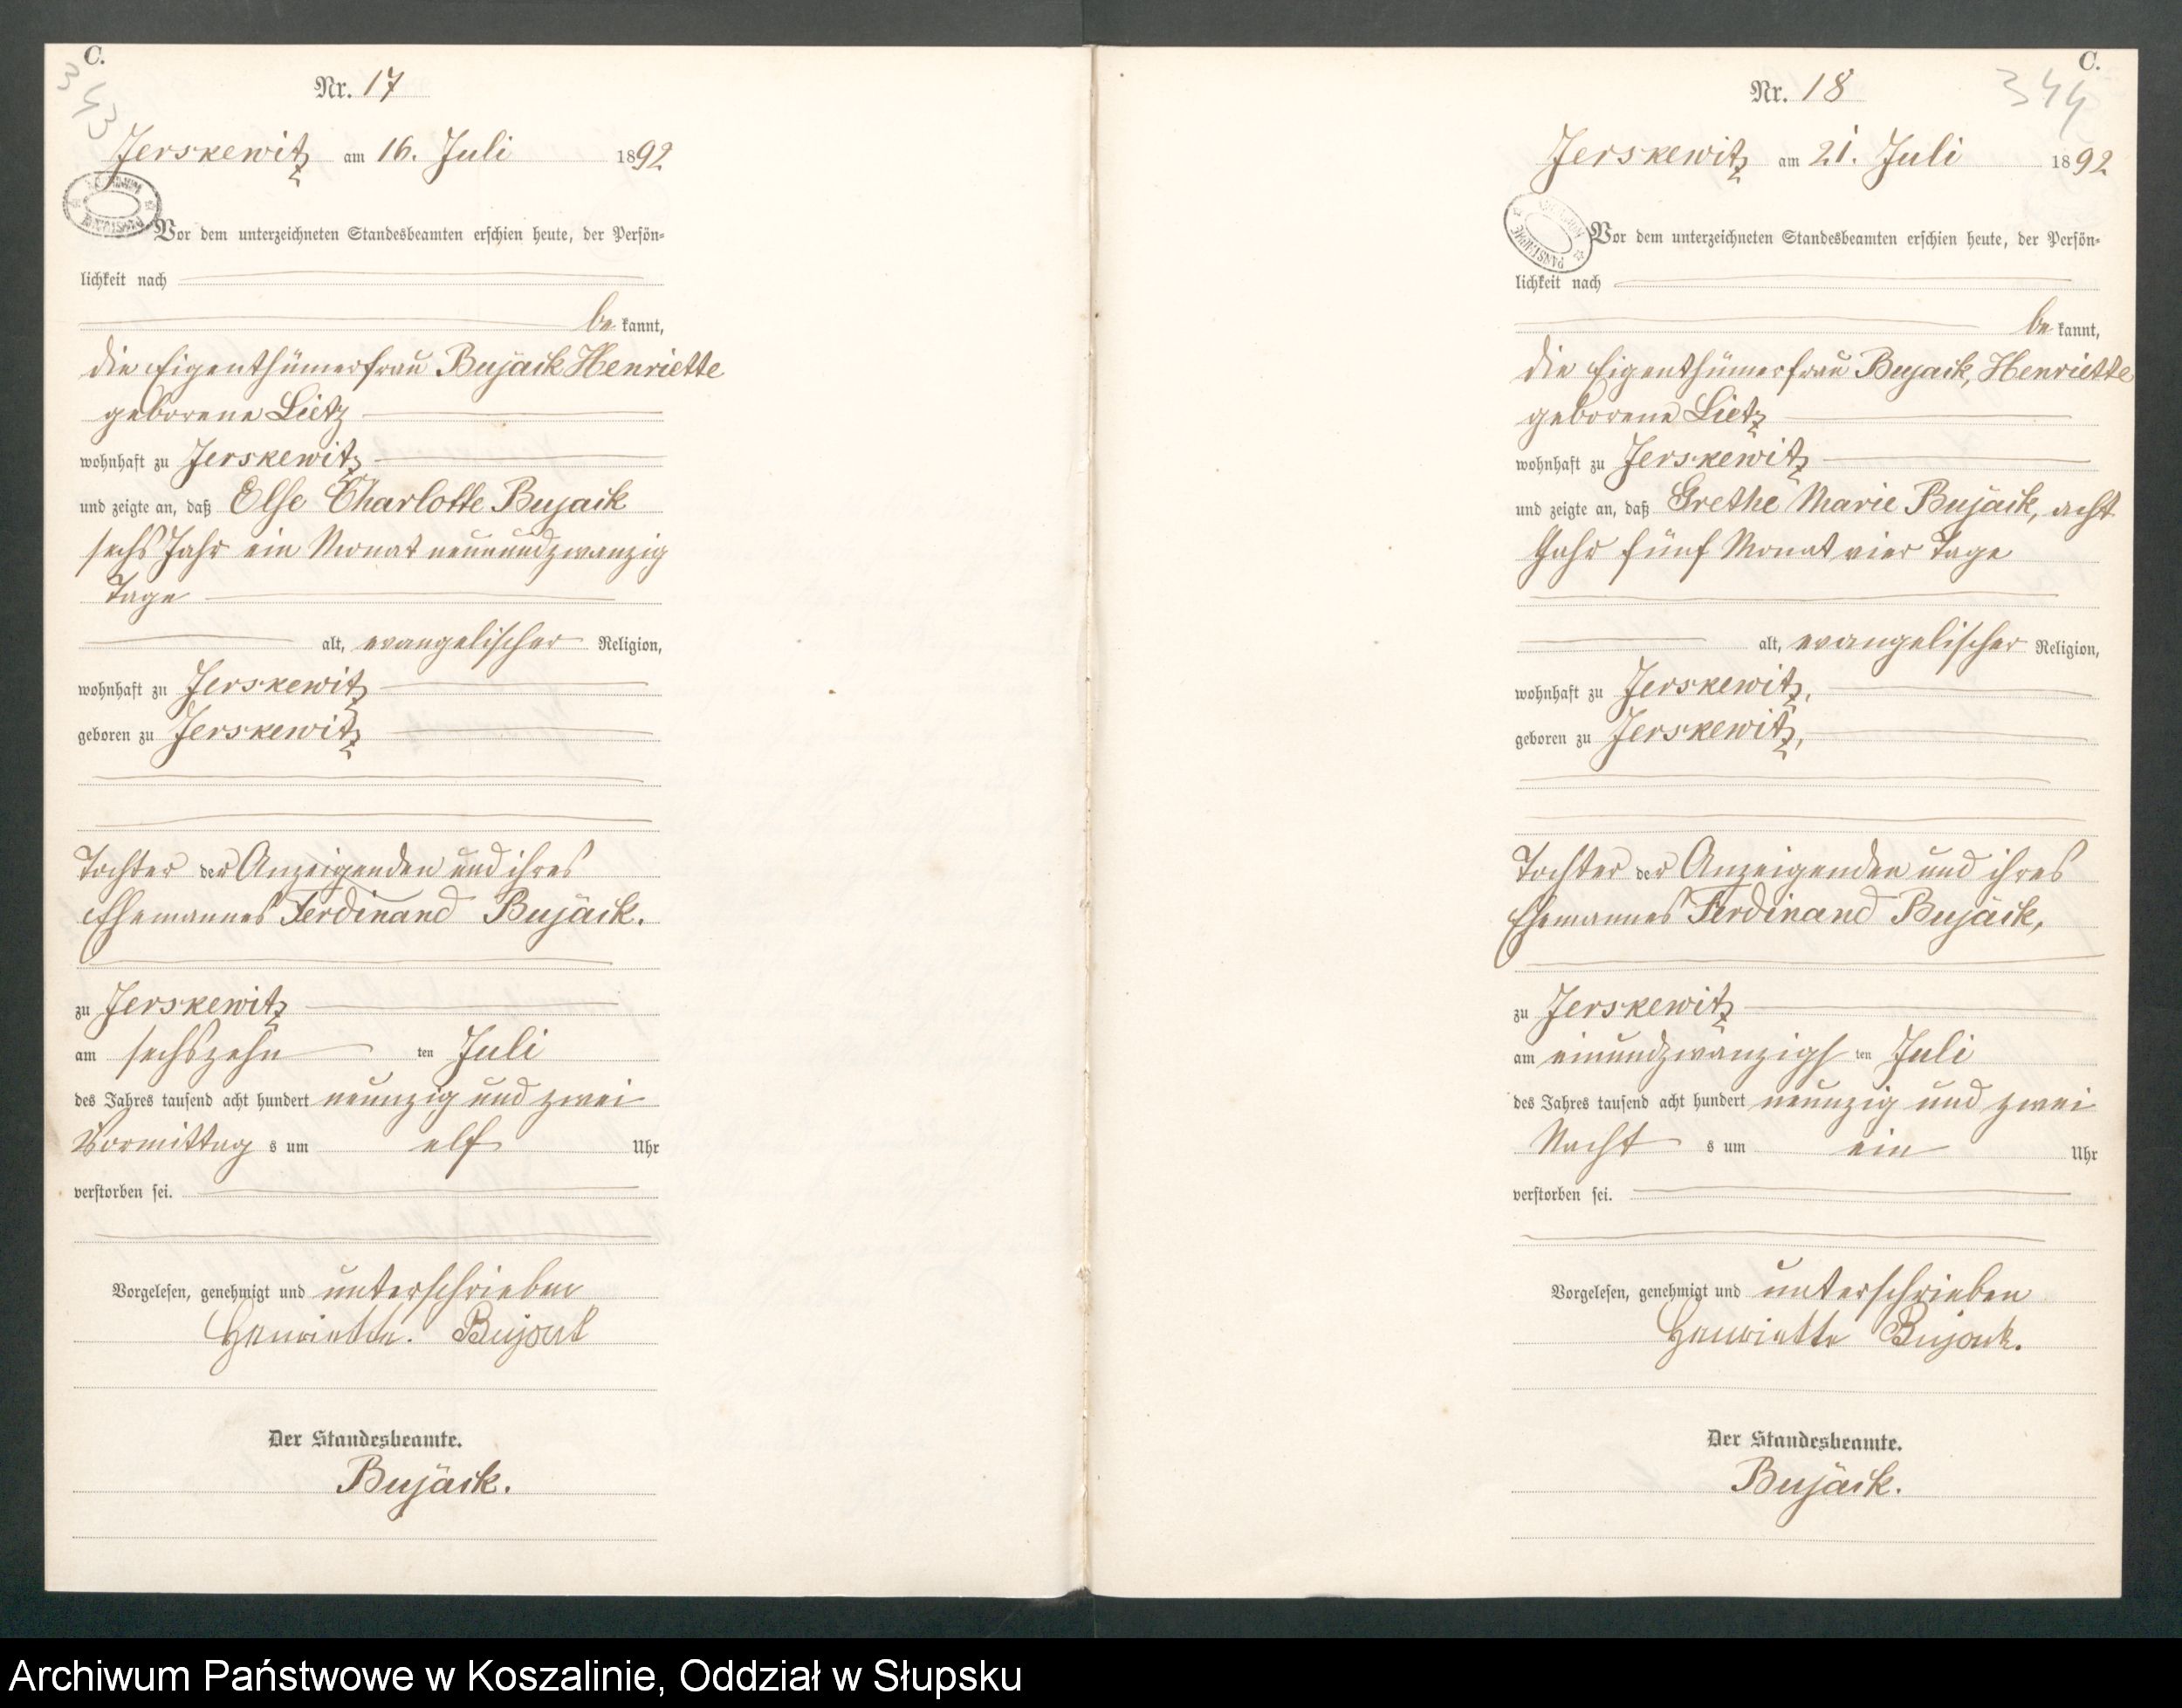 C.
343
Nr. 17
Jerskewitz am 16. Juli 1892
Vor dem unterzeichneten Standesbeamten erschien heute, der Persön-
lichkeit nach
be kannt,
die Eigenthümerfrau Bujack Henriette
geborene Lietz
wohnhaft zu Jerskewitz
und zeigte an, daß Else Charlotte Bujack
sechs Jahr ein Monat neunundzwanzig
Tage
alt, evangelischer Religion,
wohnhaft zu Jerskewitz
geboren zu Jerskewitz
Tochter der Anzeigenden und ihres
Ehemannes Ferdinand Bujack.
zu Jerskewitz
am sechszehn ten Juli
des Jahres tausend acht hundert neunzig und zwei
Vormittag s um elf Uhr
verstorben sei.
Vorgelesen, genehmigt und unterschrieben
Henriette. Bujack
Der Standesbeamte.
Bujack.
C.
344
Nr. 18
Jerskewitz am 21. Juli 1892
Vor dem unterzeichneten Standesbeamten erschien heute, der Persön-
lichkeit nach
be kannt,
die Eigenthümerfrau Bujack, Henriette
geborene Lietz
wohnhaft zu Jerskewitz
und zeigte an, daß Grethe Marie Bujack, acht
Jahr fünf Monat vier Tage
alt, evangelischer Religion,
wohnhaft zu Jerskewitz,
geboren zu Jerskewitz,
Tochter der Anzeigenden und ihres
Ehemannes Ferdinand Bujack,
zu Jerskewitz
am einundzwanzigs ten Juli
des Jahres tausend acht hundert neunzig und zwei
Nacht s um ein Uhr
verstorben sei.
Vorgelesen, genehmigt und unterschrieben
Henriette Bujack.
Der Standesbeamte.
Bujack.
Archiwum Państwowe w Koszalinie, Oddział w Słupsku